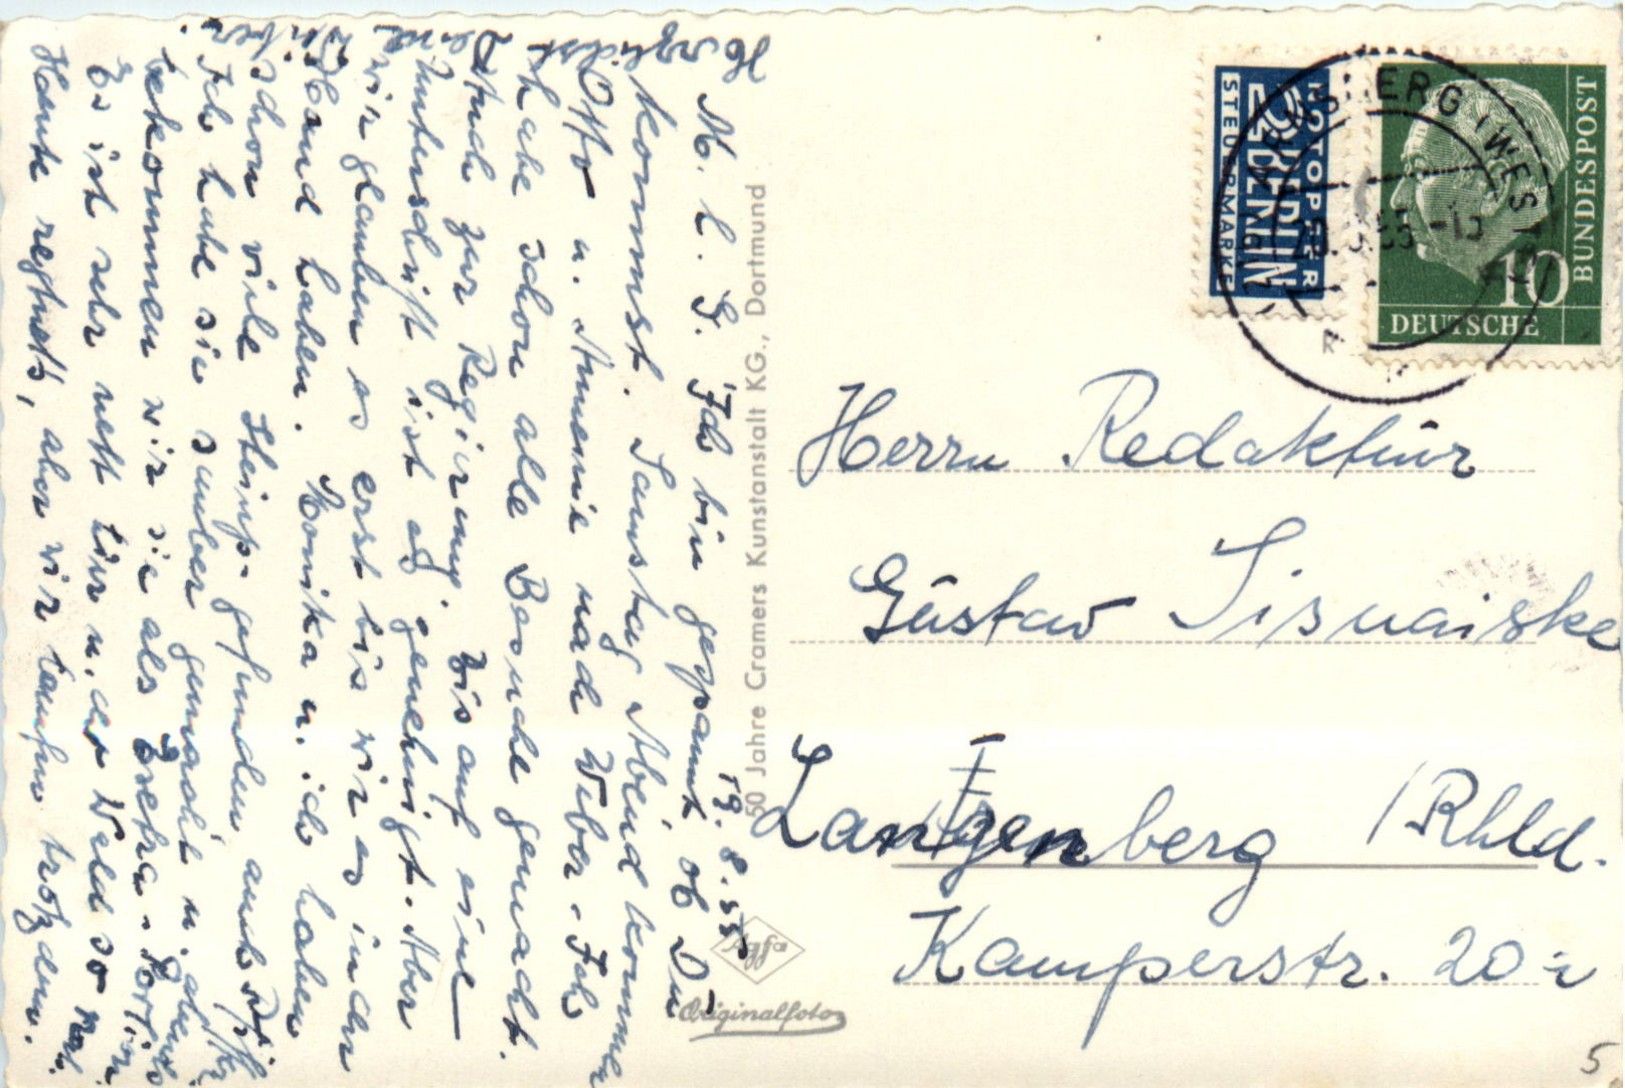 19.8.55
M. l. G. Ich bin gespannt ob Du
kommst. Samstag Abend kommen
Otto u. Annemie nach Weber. Ich
habe schon alle Besuche gemacht.
Auch zur Regierung. Bis auf eine
Unterschrift ist es genehmigt. Aber
wir glauben es erst bis wir es in der
Hand haben. Monika u. ich haben
schon viele Steinp. gefunden auch
Ich habe sie sauber gemacht u.
bekommen wir sie als Extra-Portion
Es ist sehr nett hier u. der Wald so
Heute regnets, aber wir laufen trotzdem.
50 Jahre Cramers Kunstanstalt KG., Dortmund
Agfa
Originalfoto
NOTOPFER
2 BERLIN
STEUERMARKE
DEUTSCHE
BUNDESPOST
10
ARNSBERG (WESTF)
Herrn Redakteur
Gustav Sisnaiske
Langenberg /Rhld.
Kamperstr. 20
5